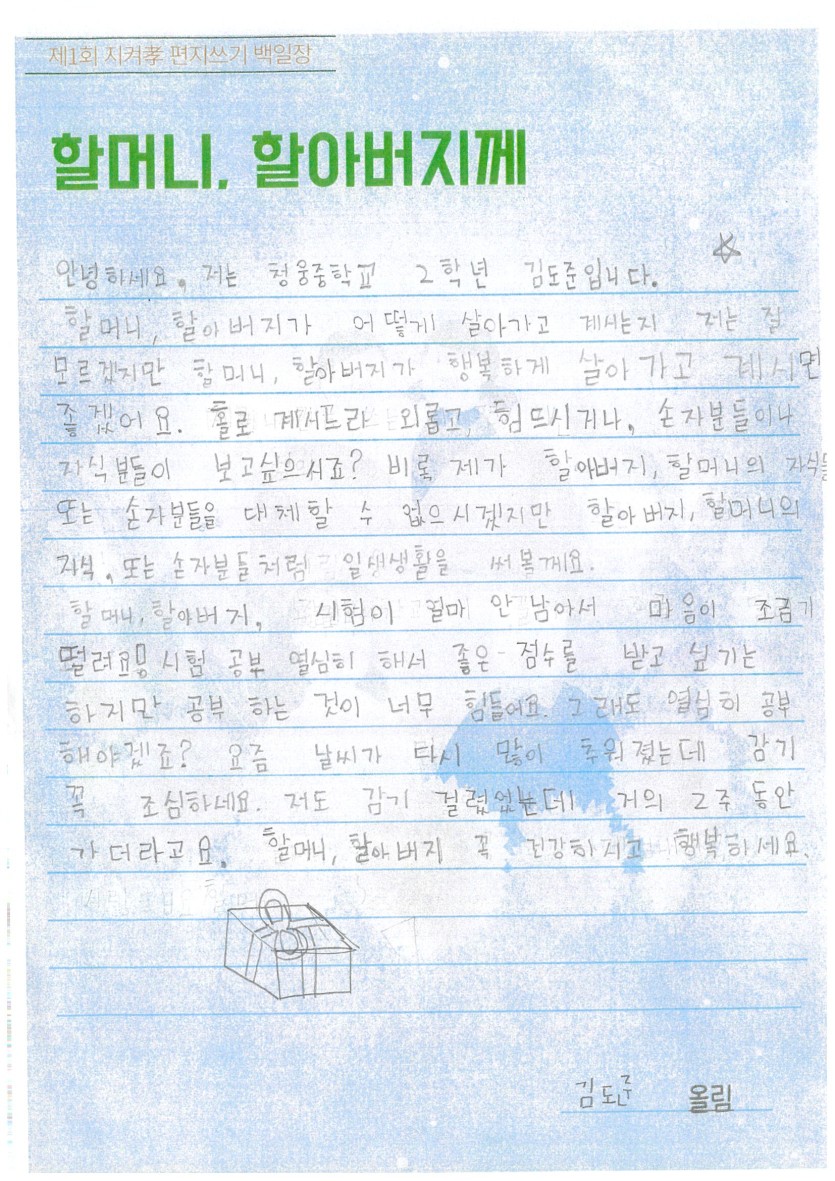 제1회 지켜孝 편지쓰기 백일장
할머니, 할아버지께
안녕하세요, 저는 청웅중학교 2학년 김도준입니다.
할머니, 할아버지가 어떻게 살아가고 계시는지 저는 잘
모르겠지만 할머니, 할아버지가 행복하게 살아가고 계시면
좋겠어요. 홀로 계시느라 외롭고, 힘드시거나, 손자분들이나
자식분들이 보고싶으시죠? 비록 제가 할아버지, 할머니의 자식들
또는 손자분들을 대체할 수 없으시겠지만 할아버지, 할머니의
자식, 또는 손자분들처럼 일생생활을 써볼께요.
할머니, 할아버지, 시험이 얼마 안 남아서 마음이 조금
떨려요!! 시험 공부 열심히 해서 좋은 점수를 받고 싶기는
하지만 공부 하는 것이 너무 힘들어요. 그래도 열심히 공부
해야겠죠? 요즘 날씨가 다시 많이 추워졌는데 감기
꼭 조심하세요. 저도 감기 걸렸었는데 거의 2주 동안
가더라고요. 할머니, 할아버지 꼭 건강하시고 행복하세요.
김도준 올림